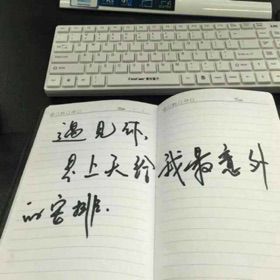 遇见你,
是上天给我最意外
的安排.